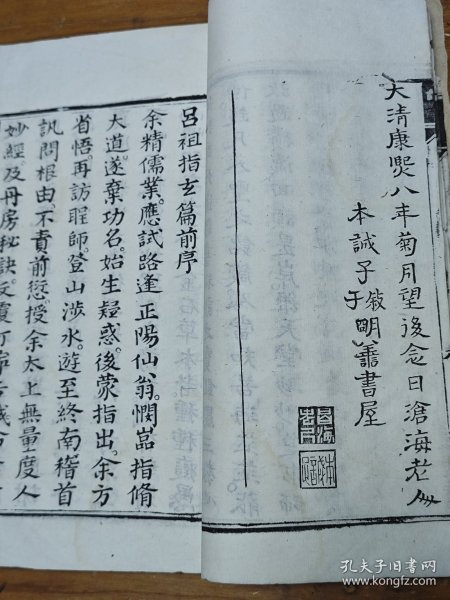 大清康熙八年菊月望後念日滄海老人
本誠子敍于明善書屋
呂祖指玄篇前序
余精儒業。應試路逢正陽仙翁。憫嵓指脩
大道。遂棄功名。始生疑惑。後蒙指出。余方
省悟。再訪眶師。登山涉水。遊至終南稽首
訊問根由。不責前愆。授余太上無量度人
妙經。及丹房秘訣。反覆叮嚀
孔夫子旧书网
www.kongfz.com